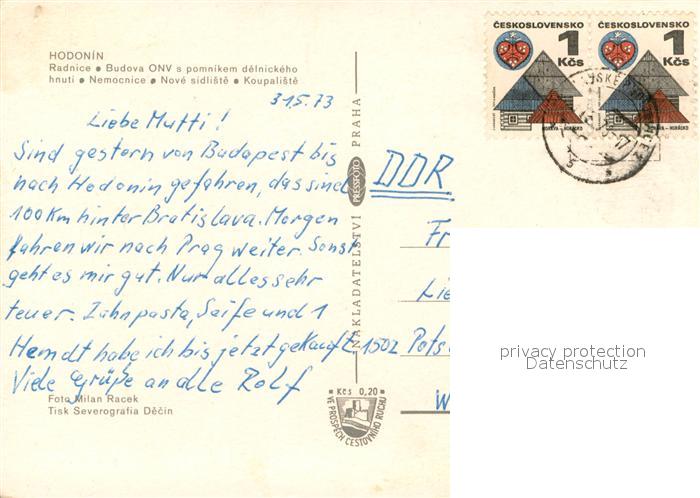 HODONÍN
Radnice • Budova ONV s pomníkem dělnického
hnutí • Nemocnice • Nové sídliště • Koupaliště
31.5.73
Liebe Mutti!
Sind gestern von Budapest bis
nach Hodonin gefahren, das sind
100 Km hinter Bratislava. Morgen
fahren wir nach Prag weiter. Sonst
geht es mir gut. Nur alles sehr
teuer. Zahnpasta, Seife und 1
Hemdt habe ich bis jetzt gekauft.
Viele Grüße an alle Rolf
Foto Milan Racek
Tisk Severografia Děčín
NAKLADATELSTVÍ PRESSFOTO PRAHA
Kčs 0,20
VE PROSPĚCH CESTOVNÍHO RUCHU
ČESKOSLOVENSKO
1
Kčs
ČESKOSLOVENSKO
1
Kčs
MORAVA - HORÁCKO
DDR
Fr
Lie
1502 Pots
W
privacy protection
Datenschutz